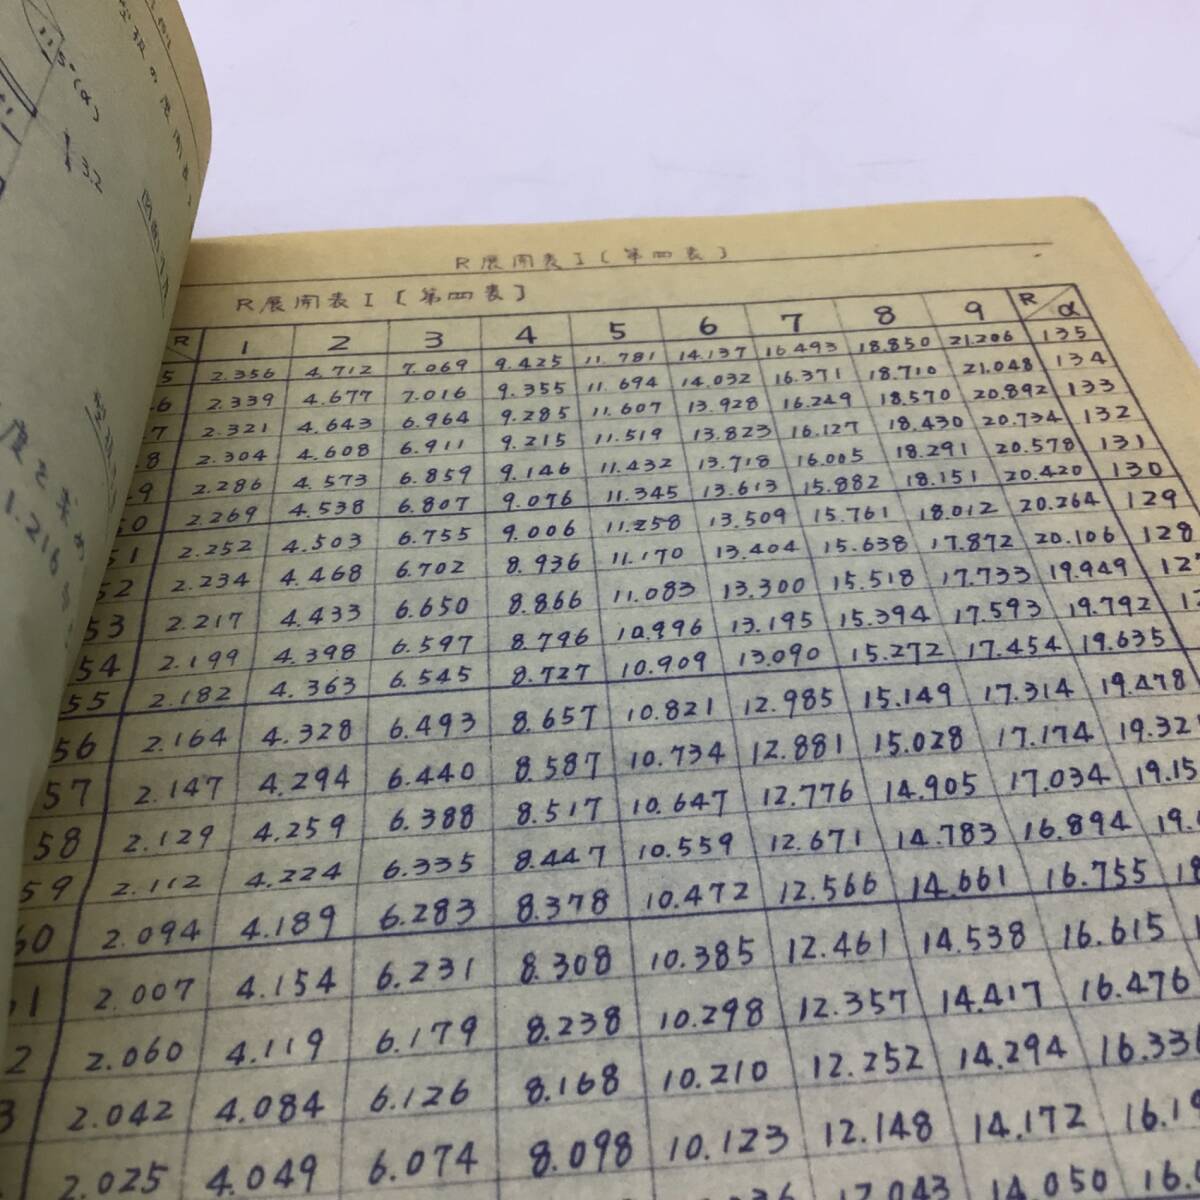 11.5°(α)
3.2
1.216
R展開表I〔第四表〕
R展開表I〔第四表〕
R 1 2 3 4 5 6 7 8 9 R α
5 2.356 4.712 7.069 9.425 11.781 14.137 16.493 18.850 21.206 135
6 2.339 4.677 7.016 9.355 11.694 14.032 16.371 18.710 21.048 134
7 2.321 4.643 6.964 9.285 11.607 13.928 16.249 18.570 20.892 133
8 2.304 4.608 6.911 9.215 11.519 13.823 16.127 18.430 20.734 132
9 2.286 4.573 6.859 9.146 11.432 13.718 16.005 18.291 20.578 131
50 2.269 4.538 6.807 9.076 11.345 13.613 15.882 18.151 20.420 130
51 2.252 4.503 6.755 9.006 11.258 13.509 15.761 18.012 20.264 129
52 2.234 4.468 6.702 8.936 11.170 13.404 15.638 17.872 20.106 128
53 2.217 4.433 6.650 8.866 11.083 13.300 15.518 17.733 19.949 12
54 2.199 4.398 6.597 8.796 10.996 13.195 15.394 17.593 19.792 1
55 2.182 4.363 6.545 8.727 10.909 13.090 15.272 17.454 19.635
56 2.164 4.328 6.493 8.657 10.821 12.985 15.149 17.314 19.478
57 2.147 4.294 6.440 8.587 10.734 12.881 15.028 17.174 19.32
58 2.129 4.259 6.388 8.517 10.647 12.776 14.905 17.034 19.15
59 2.112 4.224 6.335 8.447 10.559 12.671 14.783 16.894 19.
60 2.094 4.189 6.283 8.378 10.472 12.566 14.661 16.755 18
1 2.007 4.154 6.231 8.308 10.385 12.461 14.538 16.615
2 2.060 4.119 6.179 8.238 10.298 12.357 14.417 16.476
3 2.042 4.084 6.126 8.168 10.210 12.252 14.294 16.33
2.025 4.049 6.074 8.098 10.123 12.148 14.172 16.19
12.043 14.050 16.